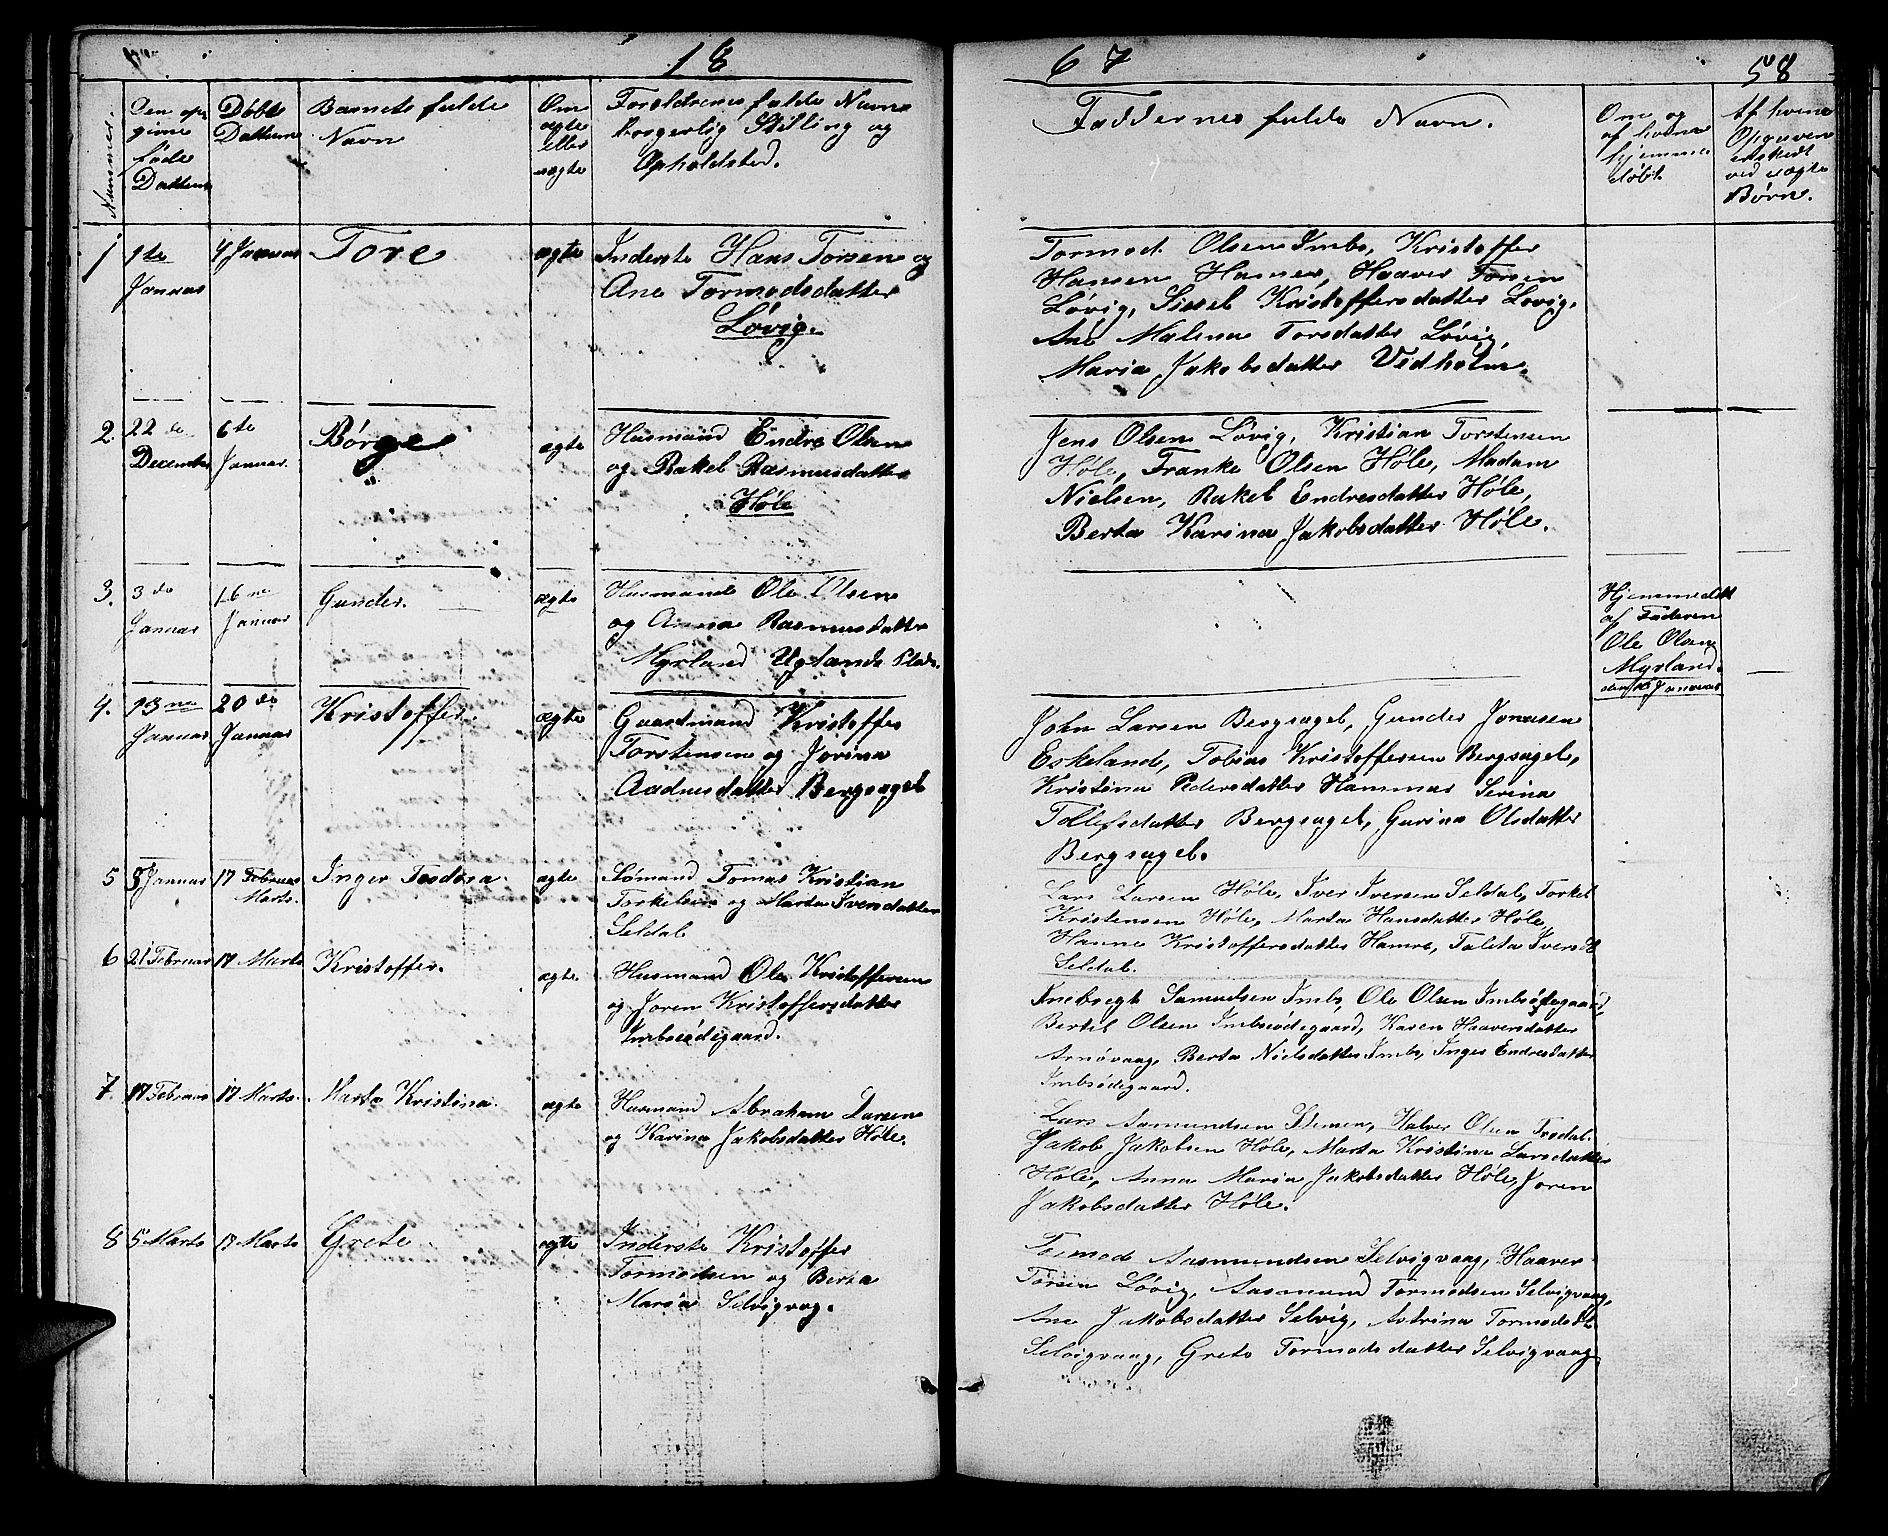 18 67 58
Nummer.
Den op-
givne
føde
Datum
Døbte
Datum
Barnets fulde
Navn
Om
ægte
eller
uægte
Foreldrenes fulde Navne
borgerlig Stilling og
Opholdsted.
Faddernes fulde Navn.
Om og
af hvem
hjemme
døbt.
Af hvem
Opgaven
er skedt
ved uægte
Børn.
1 1te
Januar
4 Januar
Tore
ægte
Inderste Hans Torsen og
Ane Tormodsdatter
Løvig.
Tormod Olsen Imbs, Kristoffer
Hansen Hamre, Haaver Torsen
Løvig, Sissel Kristoffersdatter Løvig,
Ane Malena Torsdatter Løvig,
Maria Jakobsdatter Vidholm.
2. 22de
December
6te
Januar.
Børge
ægte
Husmand Endre Olsen
og Rakel Rasmusdatter
Høle
Jens Olsen Løvig, Kristian Torstensen
Høle, Franke Olsen Høle, Madam
Nielsen, Rakel Endresdatter Høle,
Berta Karina Jakobsdatter Høle.
3. 3de
Januar
16ne
Januar
Gunder.
ægte
Husmand Ole Olsen
og Anna Rasmusdatter
Myrland Uglands Plads.
Hjemmedøbt
af Faderen
Ole Olsen
Myrland.
den 16 Januar
4. 13ne
Januar
20de
Januar
Kristoffer.
ægte
Gaardmand Kristoffer
Torstensen og Jorina
Aadnesdatter Bergsagel
John Larsen Bergsagel, Gunder Jonasen
Eskeland, Tobias Kristoffersen Bergsagel,
Kristina Pedersdatter Hammar Serina
Tollefsdatter Bergsagel, Gurina Olsdatter
Bergsagel.
5 8 Januar 17 Februar
Marts.
Inger Teodora.
ægte
Sømand Tomas Kristian
Torkelsen og Marta Iversdatter
Seldal
Lars Larsen Høle, Iver Iversen Seldal, Torkel
Kristensen Høle, Marta Hansdatter Høle,
Hanne Kristoffersdatter Hamre, Taleta Iversdt
Seldal.
6 21 Februar 17 Marts
Kristoffer.
ægte
Husmand Ole Kristoffersen
og Joren Kristoffersdatter
Imbsødegaard.
Knebsegt Samuelsen Imbs, Ole Olsen Imbsødegaard,
Bertel Olsen Imbsødegaard, Karen Haaversdatter
Arnøvaag, Berta Nielsdatter Imbs, Inger Endresdatter
Imbsødegaard.
7 17 Februar 17 Marts.
Marta Kristina.
ægte
Husmand Abraham Larsen
og Karina Jakobsdatter Høle.
Lars Asmundsen Høle, Halvor Olsen Frodal.
Jakob Jakobsen Høle, Marta Kristina Larsdatter
Høle, Anna Maria Jakobsdatter Høle, Joren
Jakobsdatter Høle.
8 5 Marts 17 Marts
Grete.
ægte
Inderste Kristoffer
Tormodsen og Berta
Maria Selvigvag.
Tormod Aasmundsen Selvigvaag, Haaver
Torsen Løvig, Aasmund Tormodsen Selvigvaag,
Ane Jakobsdatter Selvig, Astrina Tormodsdt
Selvigvaag, Grete Tormodsdatter Selvigvaag